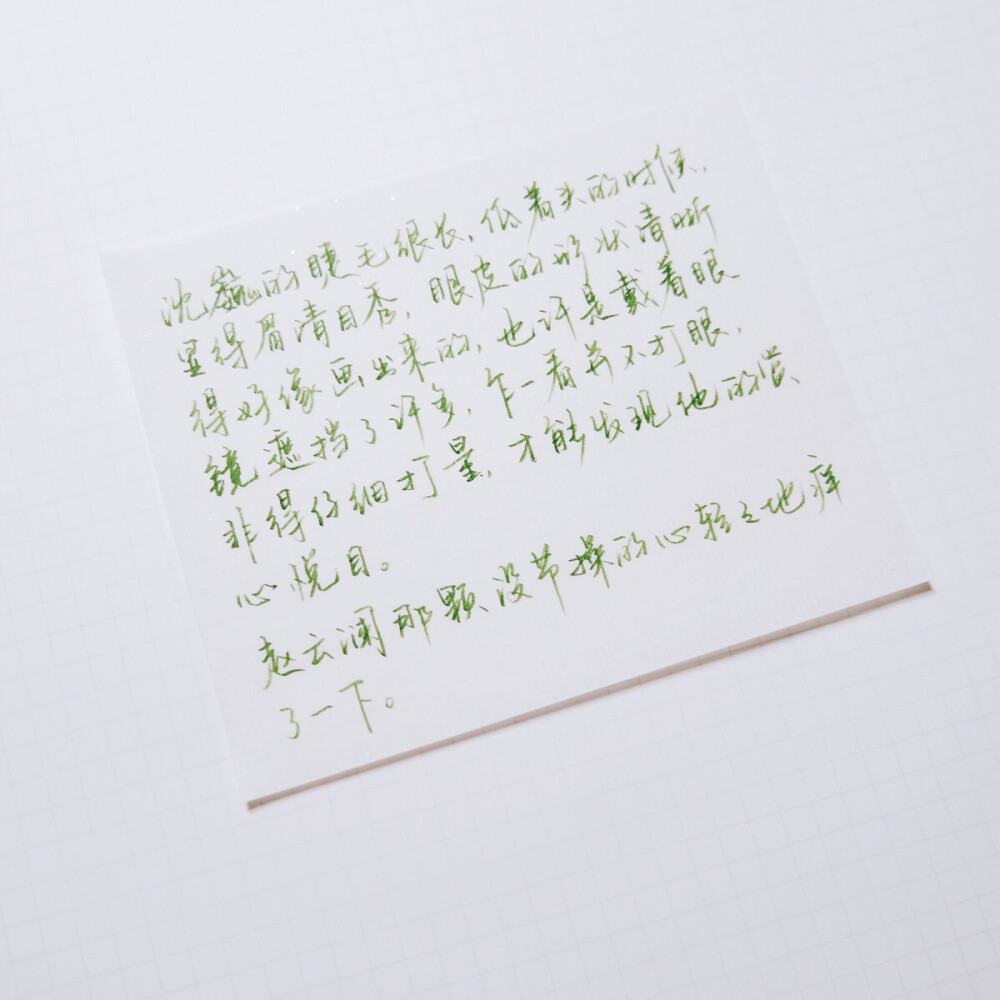 沈巍的睫毛很长,低着头的时候,
显得眉清目秀,眼皮的形状清晰
得好像画出来的,也许是戴着眼
镜遮挡了许多,乍一看并不打眼,
非得仔细打量,才能发现他的赏
心悦目。
赵云澜那颗没节操的心轻轻地痒
了一下。